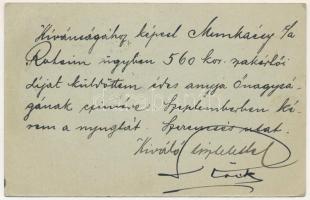 Kívánságához képest Munkácsy c/a
Roheim ügyben 560 kor. szakértői
díját küldöttem édes anyja Önagysá-
gának czímére Szeptemberben ké-
rem a nyugtát. Szerencsés utat.
Kiváló tisztelettel